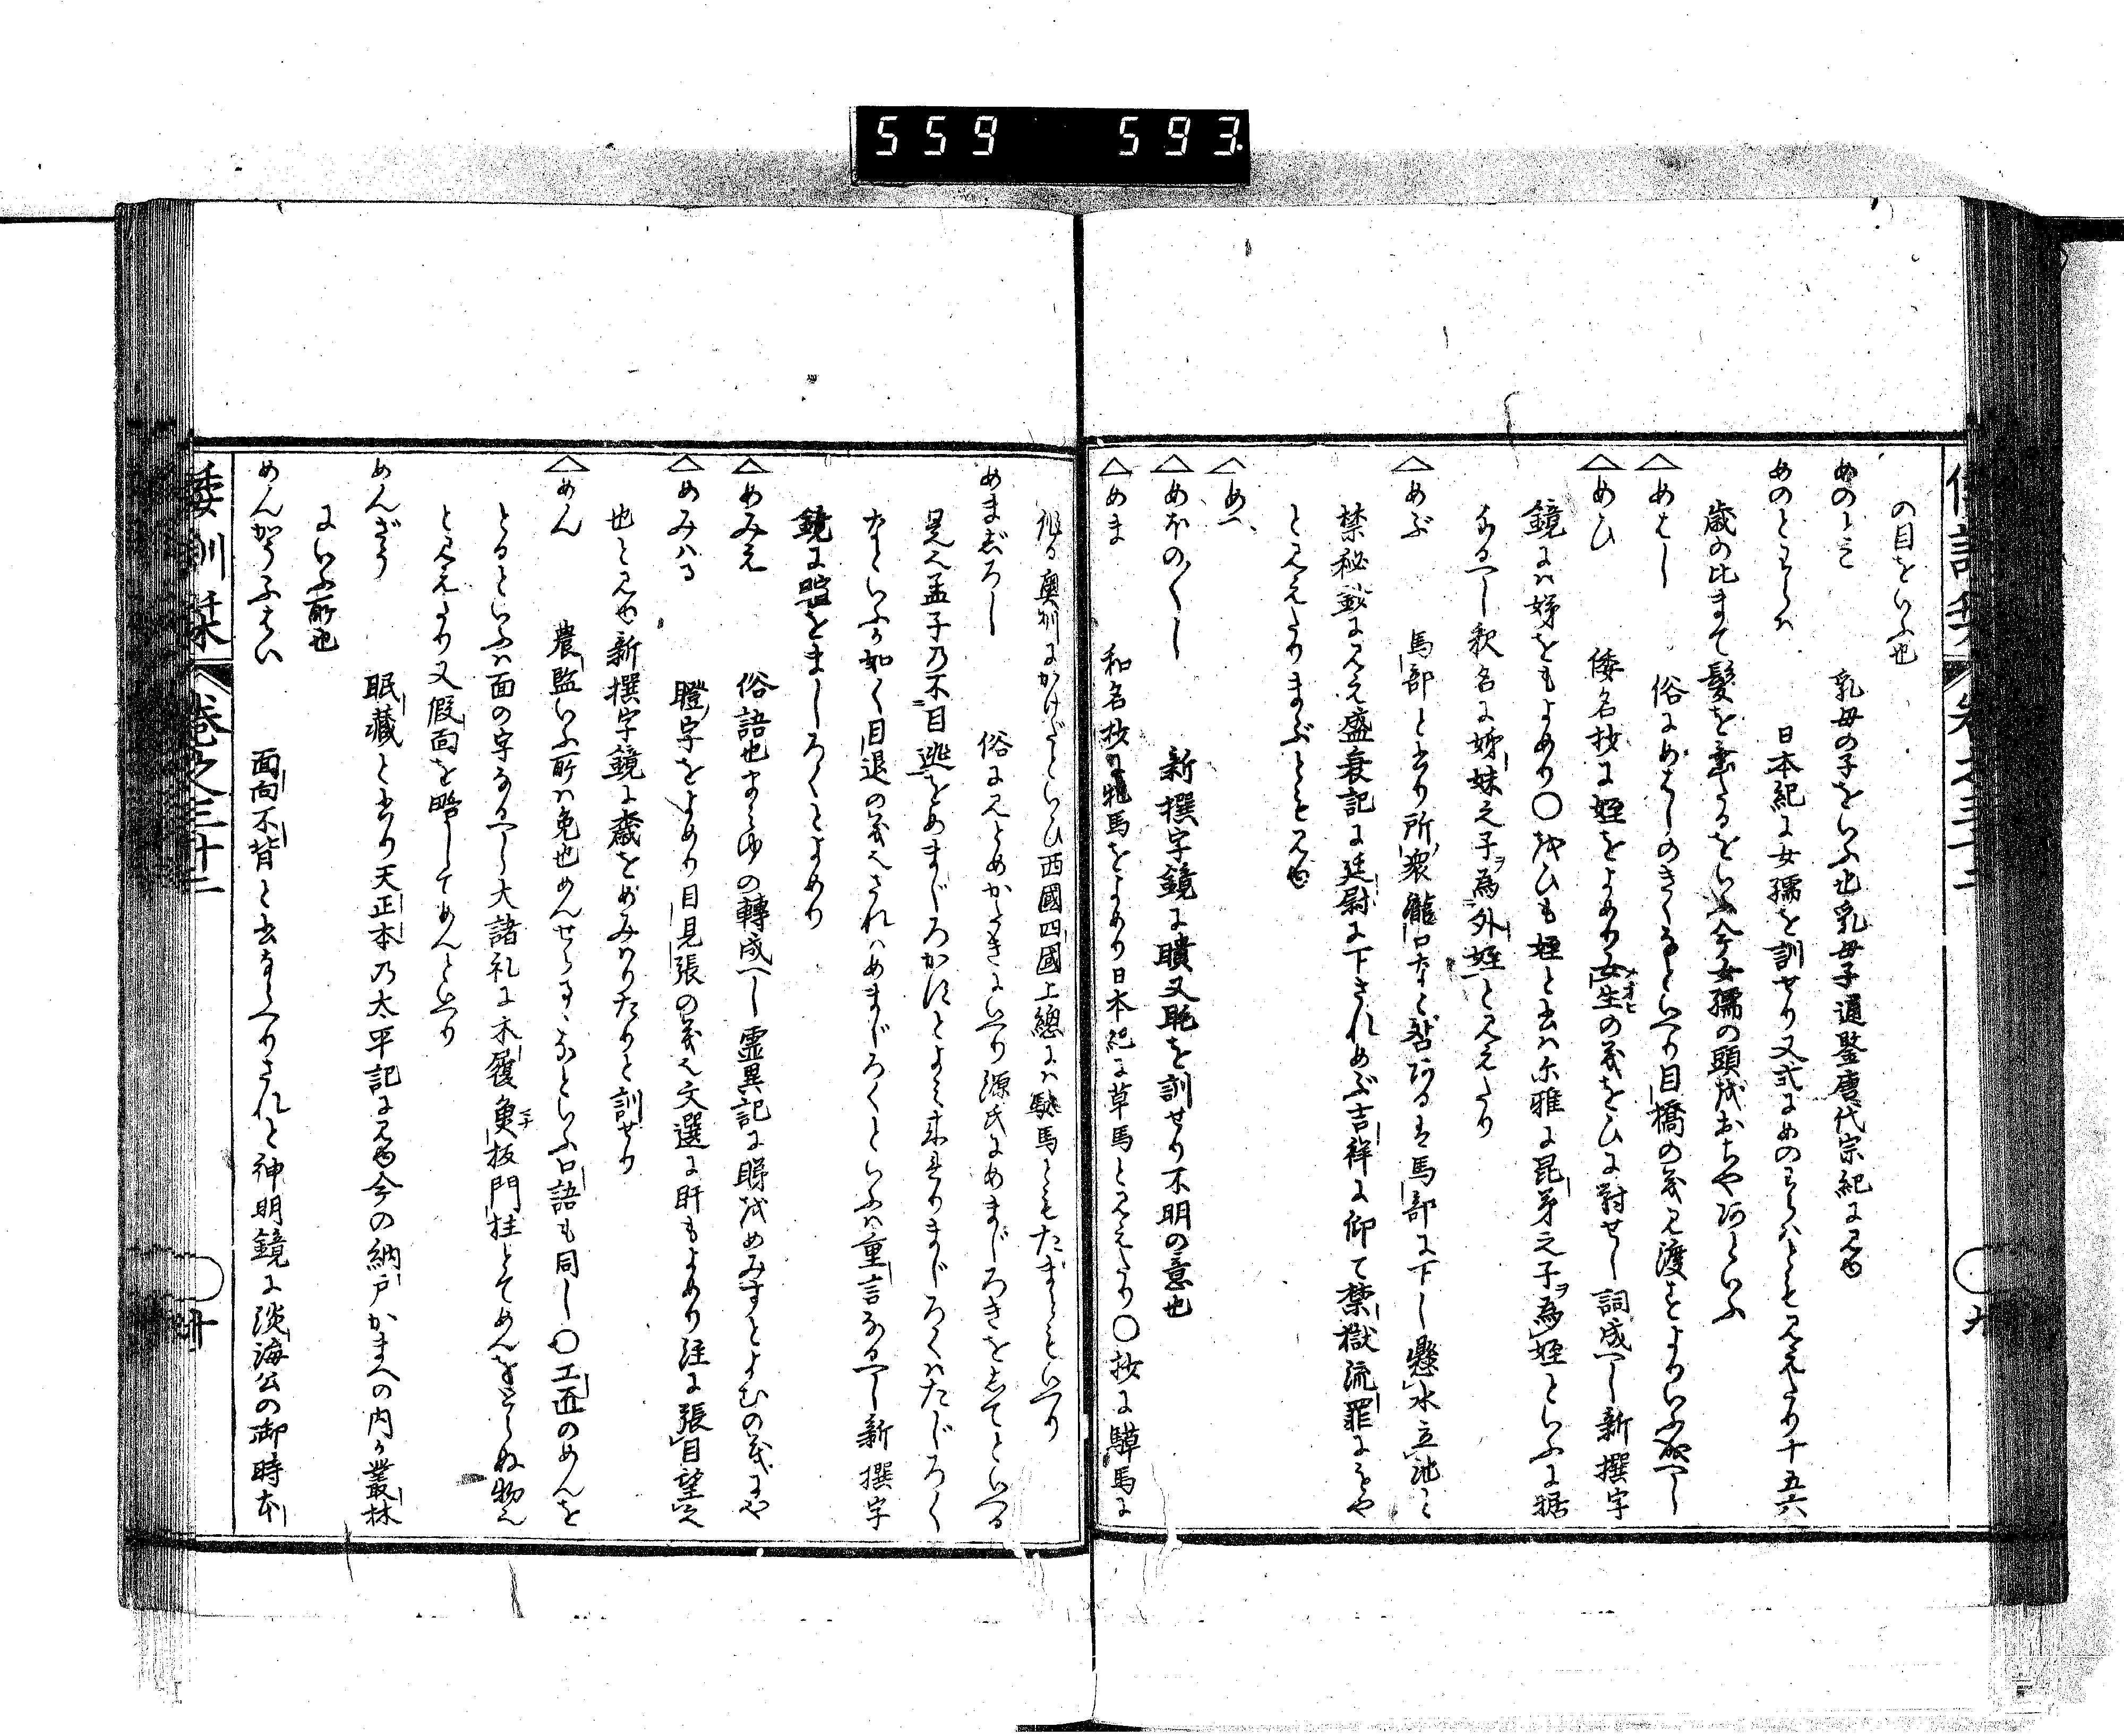 559 593
の目をいふ也
めのとこ 乳母の子をいふ也乳母子通鑒唐代宗紀に見ゆ
めのわらハ 日本紀に女孺を訓せり又式にめのわらハともと見えたり十五六
歳の比まて髪を垂たるをいふ今女孺の頭をおちやアといふ
めはし 俗にめはしのきくなといへり目橋の義見渡すよりいふ成へし
めひ 倭名抄に姪をよめり女生の義をひに對せし詞成へし新撰字
メオヒ
鏡にハ娣をもよめり○をひも姪と書ハ尓雅に昆弟之子ヲ為姪といふに據
なるへし釈名に姉妹之子ヲ為外姪と見えたり
めぶ 馬部と書り所衆龍口なと参アるは馬部に下し懸水立池と
禁秘鈔に見え盛衰記に廷尉に下されめぶ吉祥に仰て禁獄流罪にをや
と見えたりまぶとも見ゆ
めへ
めほのゝし 新撰字鏡に瞶又眊を訓せり不明の意也
めま 和名抄に牝馬をよめり日本紀に草馬と見えたり○抄に騲馬に
作る奥州にかけだといひ西國四國上總にハ騇馬ともだまともいへり
めまぜろし 俗に見とめかたきにいへり源氏にめまじろきをしてといへる
是也孟子乃不目逃をめまじろかすとよみ来れりまじろくハたじろく
なといふか如く目退の義也されハめまじろくといふハ重言なるへし新撰字
鏡にをましろくとよめり
めみえ 俗語也まみゆの轉成へし霊異記に睇をめみすとよむの義にや
めみハる 瞪字をよめり目見張の義也文選に盱もよめり注に張目望之
也と見ゆ新撰字鏡にをめみハりたりと訓せり
めん 農監いふ所ハ免也めんせらるゝなといふ口語も同し○工匠のめんを
とるといふハ面の字なるへし大諸礼に木履臭板門柱とてめんをとらぬ物也
と見えたり又假面を畧してめんといへり
めんざう 眠藏と書り天正本乃太平記に見ゆ今の納戸かまへの内か叢林
にいふ所也
めんかうふはい 面向不背と書ならへりされと神明鏡に淡海公の御時本
倭訓栞 巻之三十二
九
十